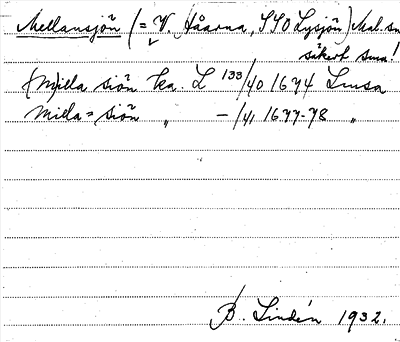 Mellansjön (= V. Håarna, SSO Lysjön) Mal. sn
säkert smn!
(M)illa siön ka. L 133/40 1674 Linsa
Milla = siön " -/41 1677-78 "
B. Lindén 1932.